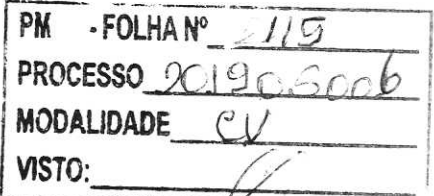 PM - FOLHA Nº 119
PROCESSO 201905006
MODALIDADE CV
VISTO: